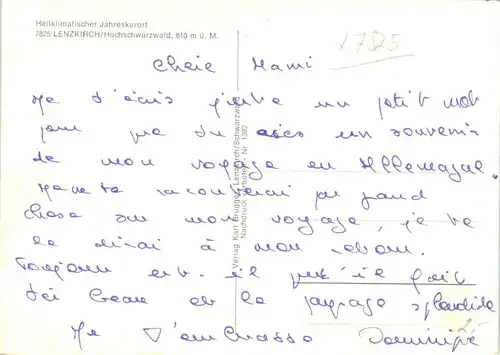 Heilklimatischer Jahreskurort
7825 LENZKIRCH/Hochschwarzwald, 810 m ü. M.
x 7825
Chere Mami
Je t'écris juste un petit mot
pour que tu aies un souvenir
de mon voyage en Allemagne.
Je ne te raconterai pas grand
chose sur mon voyage, je te
le dirai à mon retour.
Toujours est-il qu'il fait
très beau et le paysage splendide
Je t'embrasse Dominique
2,-
Verlag Karl Brugger, Lenzkirch/Schwarzwald
Nachdruck verboten - Nr. 1392